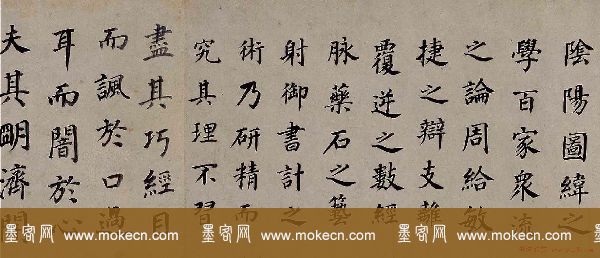 陰陽圖緯之
學百家眾流
之論周給敏
捷之辯支離
覆逆之數經
脉藥石之藝
射御書計之
術乃研精而
究其理不習
盡其巧經目
而諷於口過
耳而闇於心
夫其明濟開
墨客网 www.mokecn.com 墨客网 www.mokecn.com 墨客网 www.mokecn.com